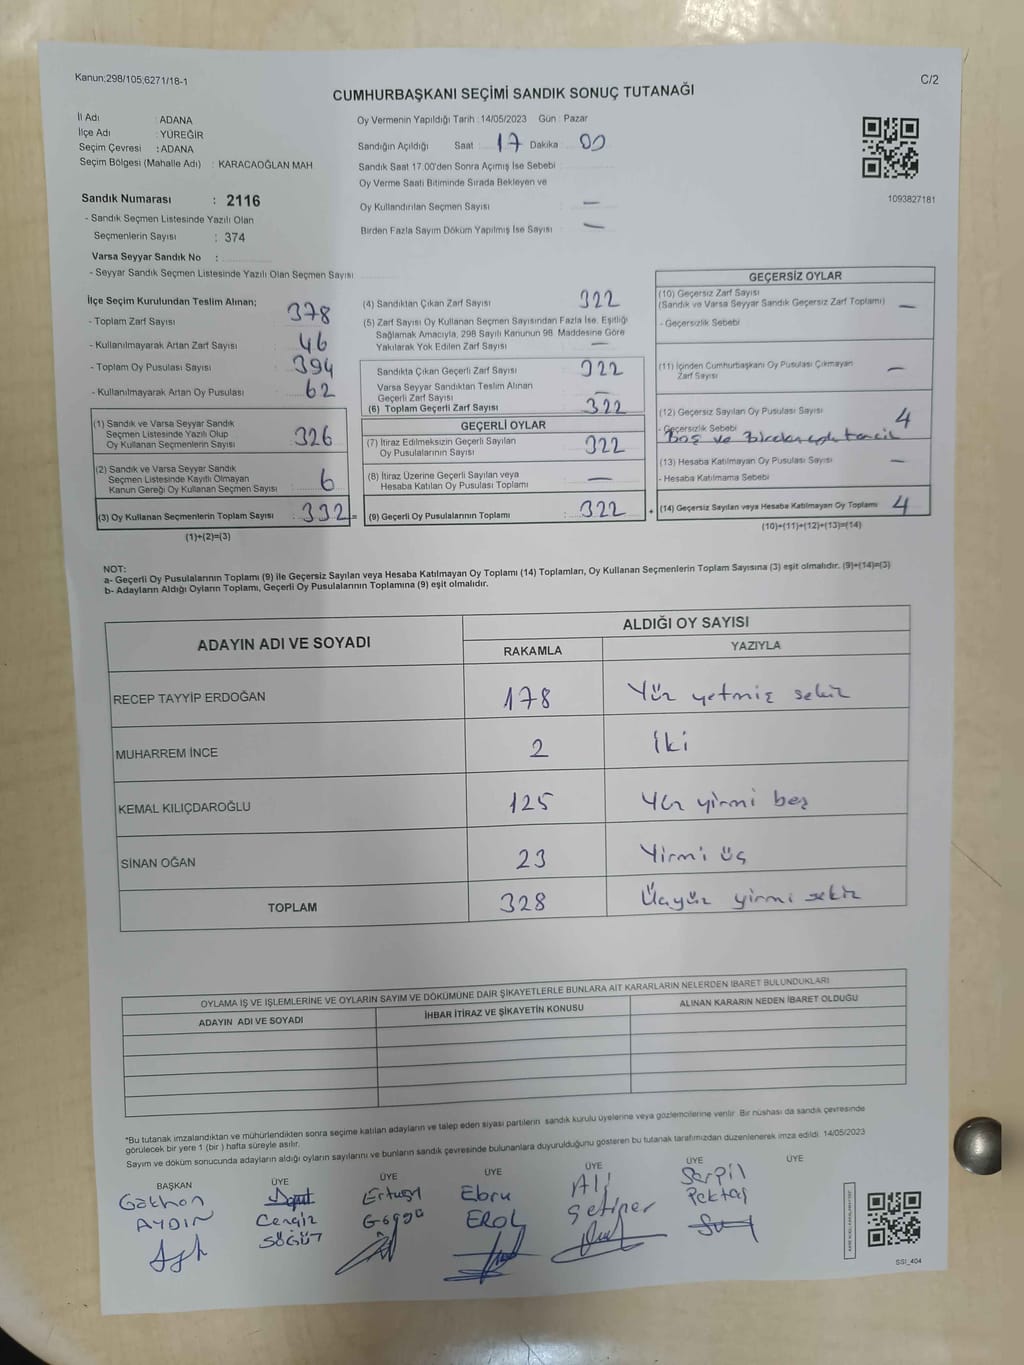 Kanun;298/105;6271/18-1
C/2
CUMHURBAŞKANI SEÇİMİ SANDIK SONUÇ TUTANAĞI
İl Adı : ADANA
İlçe Adı : YÜREĞİR
Seçim Çevresi : ADANA
Seçim Bölgesi (Mahalle Adı) : KARACAOĞLAN MAH
Sandık Numarası : 2116
- Sandık Seçmen Listesinde Yazılı Olan
Seçmenlerin Sayısı : 374
Varsa Seyyar Sandık No :
- Seyyar Sandık Seçmen Listesinde Yazılı Olan Seçmen Sayısı
Oy Vermenin Yapıldığı Tarih : 14/05/2023 Gün : Pazar
Sandığın Açıldığı Saat : 17 Dakika : 00
Sandık Saat 17.00'den Sonra Açımış İse Sebebi :
Oy Verme Saati Bitiminde Sırada Bekleyen ve
Oy Kullandırılan Seçmen Sayısı —
Birden Fazla Sayım Döküm Yapılmış İse Sayısı —
1093827181
İlçe Seçim Kurulundan Teslim Alınan;
- Toplam Zarf Sayısı 378
- Kullanılmayarak Artan Zarf Sayısı 46
- Toplam Oy Pusulası Sayısı 394
- Kullanılmayarak Artan Oy Pusulası 62
(1) Sandık ve Varsa Seyyar Sandık
Seçmen Listesinde Yazılı Olup
Oy Kullanan Seçmenlerin Sayısı 326
(2) Sandık ve Varsa Seyyar Sandık
Seçmen Listesinde Kayıtlı Olmayan
Kanun Gereği Oy Kullanan Seçmen Sayısı 6
(3) Oy Kullanan Seçmenlerin Toplam Sayısı : 332 =
(1)+(2)=(3)
(4) Sandıktan Çıkan Zarf Sayısı 322
(5) Zarf Sayısı Oy Kullanan Seçmen Sayısından Fazla İse, Eşitliği
Sağlamak Amacıyla, 298 Sayılı Kanunun 98. Maddesine Göre
Yakılarak Yok Edilen Zarf Sayısı —
Sandıkta Çıkan Geçerli Zarf Sayısı 322
Varsa Seyyar Sandıktan Teslim Alınan
Geçerli Zarf Sayısı —
(6) Toplam Geçerli Zarf Sayısı 322
GEÇERLİ OYLAR
(7) İtiraz Edilmeksizin Geçerli Sayılan
Oy Pusulalarının Sayısı 322
(8) İtiraz Üzerine Geçerli Sayılan veya
Hesaba Katılan Oy Pusulası Toplamı —
(9) Geçerli Oy Pusulalarının Toplamı : 322 +
GEÇERSİZ OYLAR
(10) Geçersiz Zarf Sayısı
(Sandık ve Varsa Seyyar Sandık Geçersiz Zarf Toplamı) —
- Geçersizlik Sebebi
(11) İçinden Cumhurbaşkanı Oy Pusulası Çıkmayan
Zarf Sayısı —
(12) Geçersiz Sayılan Oy Pusulası Sayısı 4
- Geçersizlik Sebebi
Boş ve
(13) Hesaba Katılmayan Oy Pusulası Sayısı —
- Hesaba Katılmama Sebebi
(14) Geçersiz Sayılan veya Hesaba Katılmayan Oy Toplamı 4
(10)+(11)+(12)+(13)=(14)
NOT:
a- Geçerli Oy Pusulalarının Toplamı (9) ile Geçersiz Sayılan veya Hesaba Katılmayan Oy Toplamı (14) Toplamları, Oy Kullanan Seçmenlerin Toplam Sayısına (3) eşit olmalıdır. (9)+(14)=(3)
b- Adayların Aldığı Oyların Toplamı, Geçerli Oy Pusulalarının Toplamına (9) eşit olmalıdır.
ADAYIN ADI VE SOYADI
ALDIĞI OY SAYISI
RAKAMLA YAZIYLA
RECEP TAYYİP ERDOĞAN 178 Yüz yetmiş sekiz
MUHARREM İNCE 2 İki
KEMAL KILIÇDAROĞLU 125 Yüz yirmi beş
SİNAN OĞAN 23 Yirmi üç
TOPLAM 328 Üçyüz yirmi sekiz
OYLAMA İŞ VE İŞLEMLERİNE VE OYLARIN SAYIM VE DÖKÜMÜNE DAİR ŞİKAYETLERLE BUNLARA AİT KARARLARIN NELERDEN İBARET BULUNDUKLARI
ADAYIN ADI VE SOYADI İHBAR İTİRAZ VE ŞİKAYETİN KONUSU ALINAN KARARIN NEDEN İBARET OLDUĞU
*Bu tutanak imzalandıktan ve mühürlendikten sonra seçime katılan adayların ve talep eden siyasi partilerin sandık kurulu üyelerine veya gözlemcilerine verilir. Bir nüshası da sandık çevresinde
görülecek bir yere 1 (bir) hafta süreyle asılır.
Sayım ve döküm sonucunda adayların aldığı oyların sayılarını ve bunların sandık çevresinde bulunanlara duyurulduğunu gösteren bu tutanak tarafımızdan düzenlenerek imza edildi. 14/05/2023
BAŞKAN ÜYE ÜYE ÜYE ÜYE ÜYE ÜYE
Gökhan
AYDIN
Cengiz
SÖĞÜT
Ertuğrul
Ebru
EROL
Ali
Serpil
Pektaş
SSI_404